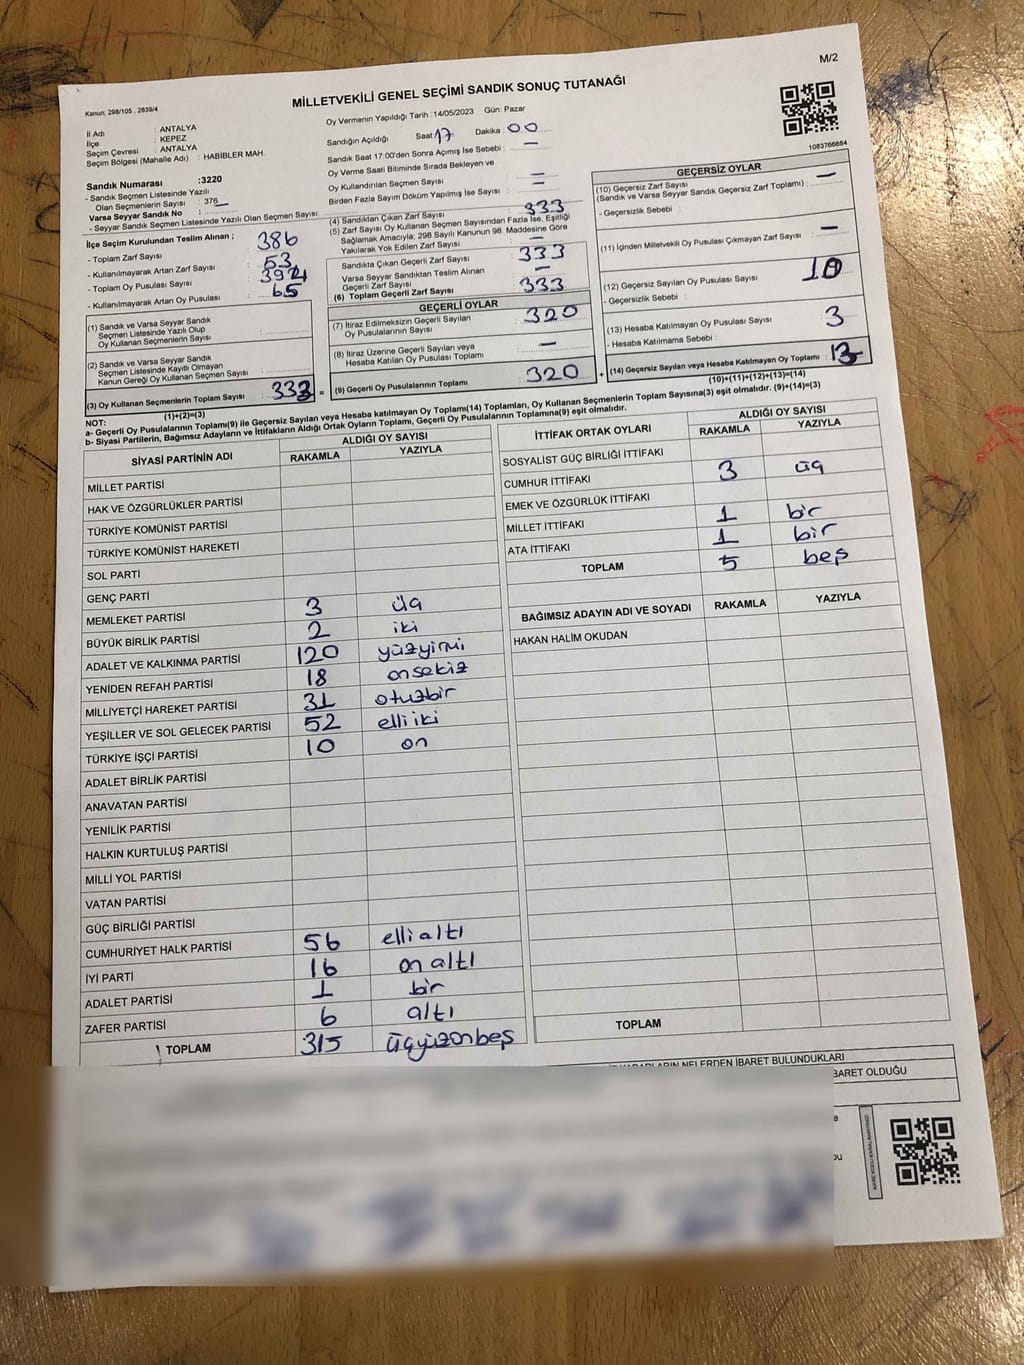 M/2
Kanun: 298/105 , 2839/4
MİLLETVEKİLİ GENEL SEÇİMİ SANDIK SONUÇ TUTANAĞI
1083766684
İl Adı : ANTALYA
İlçe : KEPEZ
Seçim Çevresi : ANTALYA
Seçim Bölgesi (Mahalle Adı) : HABİBLER MAH.
Sandık Numarası :3220
- Sandık Seçmen Listesinde Yazılı
Olan Seçmenlerin Sayısı : 376
Varsa Seyyar Sandık No :
- Seyyar Sandık Seçmen Listesinde Yazılı Olan Seçmen Sayısı:
İlçe Seçim Kurulundan Teslim Alınan ;
- Toplam Zarf Sayısı : 386
- Kullanılmayarak Artan Zarf Sayısı : 53
- Toplam Oy Pusulası Sayısı :
- Kullanılmayarak Artan Oy Pusulası : 65
(1) Sandık ve Varsa Seyyar Sandık
Seçmen Listesinde Yazılı Olup
Oy Kullanan Seçmenlerin Sayısı :
(2) Sandık ve Varsa Seyyar Sandık
Seçmen Listesinde Kayıtlı Olmayan
Kanun Gereği Oy Kullanan Seçmen Sayısı :
(3) Oy Kullanan Seçmenlerin Toplam Sayısı : 333 =
(1)+(2)=(3)
Oy Vermenin Yapıldığı Tarih :14/05/2023 Gün: Pazar
Sandığın Açıldığı Saat: 17 Dakika : 00
Sandık Saat 17:00'den Sonra Açımış İse Sebebi : —
Oy Verme Saati Bitiminde Sırada Bekleyen ve
Oy Kullandırılan Seçmen Sayısı : —
Birden Fazla Sayım Döküm Yapılmış İse Sayısı : —
(4) Sandıktan Çıkan Zarf Sayısı : 333
(5) Zarf Sayısı Oy Kullanan Seçmen Sayısından Fazla İse, Eşitliği
Sağlamak Amacıyla; 298 Sayılı Kanunun 98. Maddesine Göre
Yakılarak Yok Edilen Zarf Sayısı : —
Sandıkta Çıkan Geçerli Zarf Sayısı : 333
Varsa Seyyar Sandıktan Teslim Alınan
Geçerli Zarf Sayısı : —
(6) Toplam Geçerli Zarf Sayısı : 333
GEÇERLİ OYLAR
(7) İtiraz Edilmeksizin Geçerli Sayılan
Oy Pusulalarının Sayısı : 320
(8) İtiraz Üzerine Geçerli Sayılan veya
Hesaba Katılan Oy Pusulası Toplamı : —
(9) Geçerli Oy Pusulalarının Toplamı : 320 +
GEÇERSİZ OYLAR
(10) Geçersiz Zarf Sayısı
(Sandık ve Varsa Seyyar Sandık Geçersiz Zarf Toplamı) : —
- Geçersizlik Sebebi :
(11) İçinden Milletvekili Oy Pusulası Çıkmayan Zarf Sayısı : —
(12) Geçersiz Sayılan Oy Pusulası Sayısı : 10
- Geçersizlik Sebebi :
(13) Hesaba Katılmayan Oy Pusulası Sayısı : 3
- Hesaba Katılmama Sebebi :
(14) Geçersiz Sayılan veya Hesaba Katılmayan Oy Toplamı : 13
(10)+(11)+(12)+(13)=(14)
NOT:
a- Geçerli Oy Pusulalarının Toplamı(9) ile Geçersiz Sayılan veya Hesaba katılmayan Oy Toplamı(14) Toplamları, Oy Kullanan Seçmenlerin Toplam Sayısına(3) eşit olmalıdır. (9)+(14)=(3)
b- Siyasi Partilerin, Bağımsız Adayların ve İttifakların Aldığı Ortak Oyların Toplamı, Geçerli Oy Pusulalarının Toplamına(9) eşit olmalıdır.
SİYASİ PARTİNİN ADI ALDIĞI OY SAYISI
RAKAMLA YAZIYLA
MİLLET PARTİSİ
HAK VE ÖZGÜRLÜKLER PARTİSİ
TÜRKİYE KOMÜNİST PARTİSİ
TÜRKİYE KOMÜNİST HAREKETİ
SOL PARTİ
GENÇ PARTİ
MEMLEKET PARTİSİ 3 üç
BÜYÜK BİRLİK PARTİSİ 2 iki
ADALET VE KALKINMA PARTİSİ 120 yüzyirmi
YENİDEN REFAH PARTİSİ 18 onsekiz
MİLLİYETÇİ HAREKET PARTİSİ 31 otuzbir
YEŞİLLER VE SOL GELECEK PARTİSİ 52 elli iki
TÜRKİYE İŞÇİ PARTİSİ 10 on
ADALET BİRLİK PARTİSİ
ANAVATAN PARTİSİ
YENİLİK PARTİSİ
HALKIN KURTULUŞ PARTİSİ
MİLLİ YOL PARTİSİ
VATAN PARTİSİ
GÜÇ BİRLİĞİ PARTİSİ
CUMHURİYET HALK PARTİSİ 56 elli altı
İYİ PARTİ 16 on altı
ADALET PARTİSİ 1 bir
ZAFER PARTİSİ 6 altı
TOPLAM 315 üçyüzonbeş
İTTİFAK ORTAK OYLARI ALDIĞI OY SAYISI
RAKAMLA YAZIYLA
SOSYALİST GÜÇ BİRLİĞİ İTTİFAKI
CUMHUR İTTİFAKI 3 üç
EMEK VE ÖZGÜRLÜK İTTİFAKI
MİLLET İTTİFAKI 1 bir
ATA İTTİFAKI 1 bir
TOPLAM 5 beş
BAĞIMSIZ ADAYIN ADI VE SOYADI RAKAMLA YAZIYLA
HAKAN HALİM OKUDAN
TOPLAM
NELERDEN İBARET BULUNDUKLARI
BARET OLDUĞU